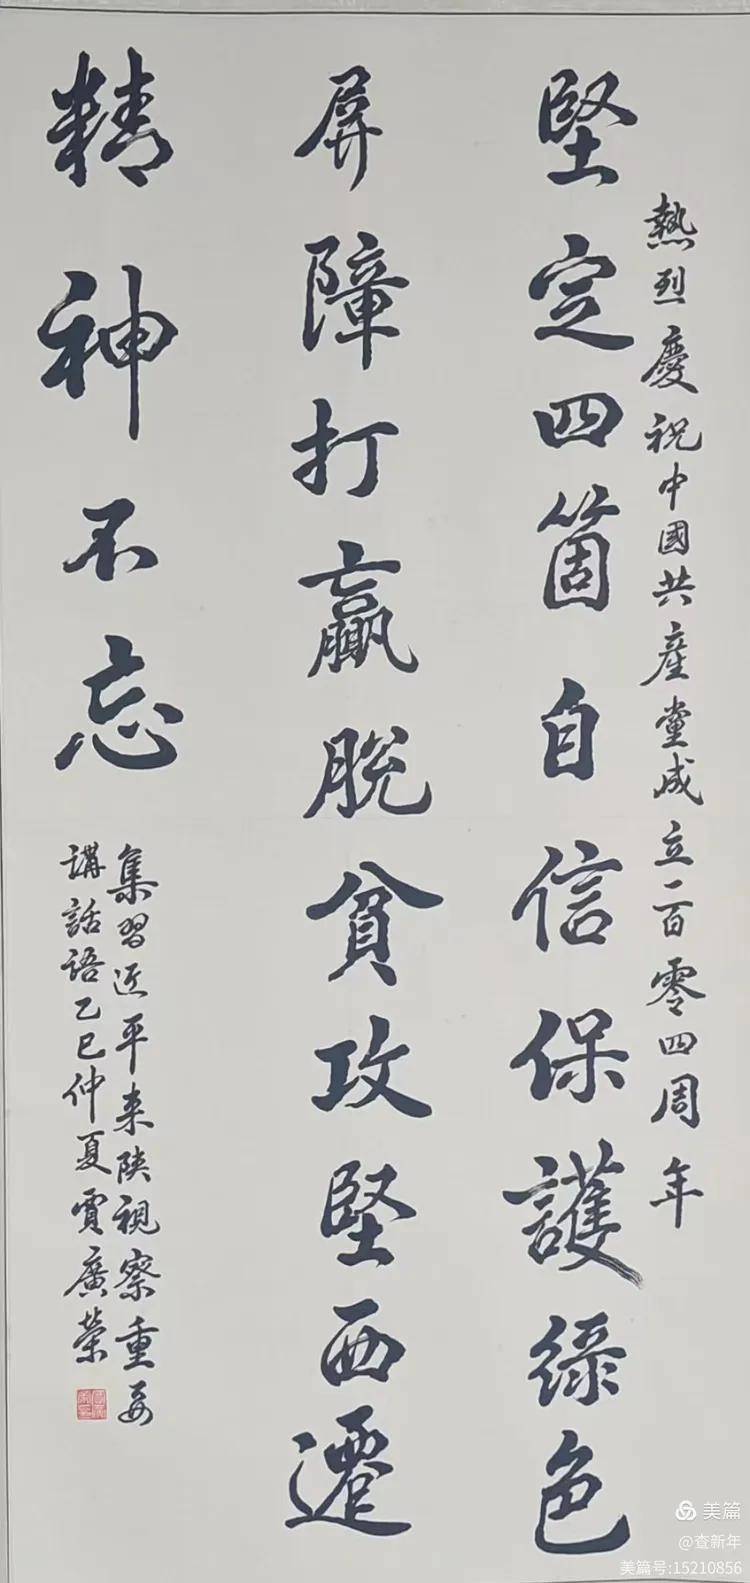 熱烈慶祝中國共産黨成立一百零四周年
堅定四箇自信保護綠色
屏障打贏脫貧攻堅西遷
精神不忘
集習近平來陝視察重要
講話語乙巳仲夏賈廣榮
美篇
@查新年
美篇号:15210856